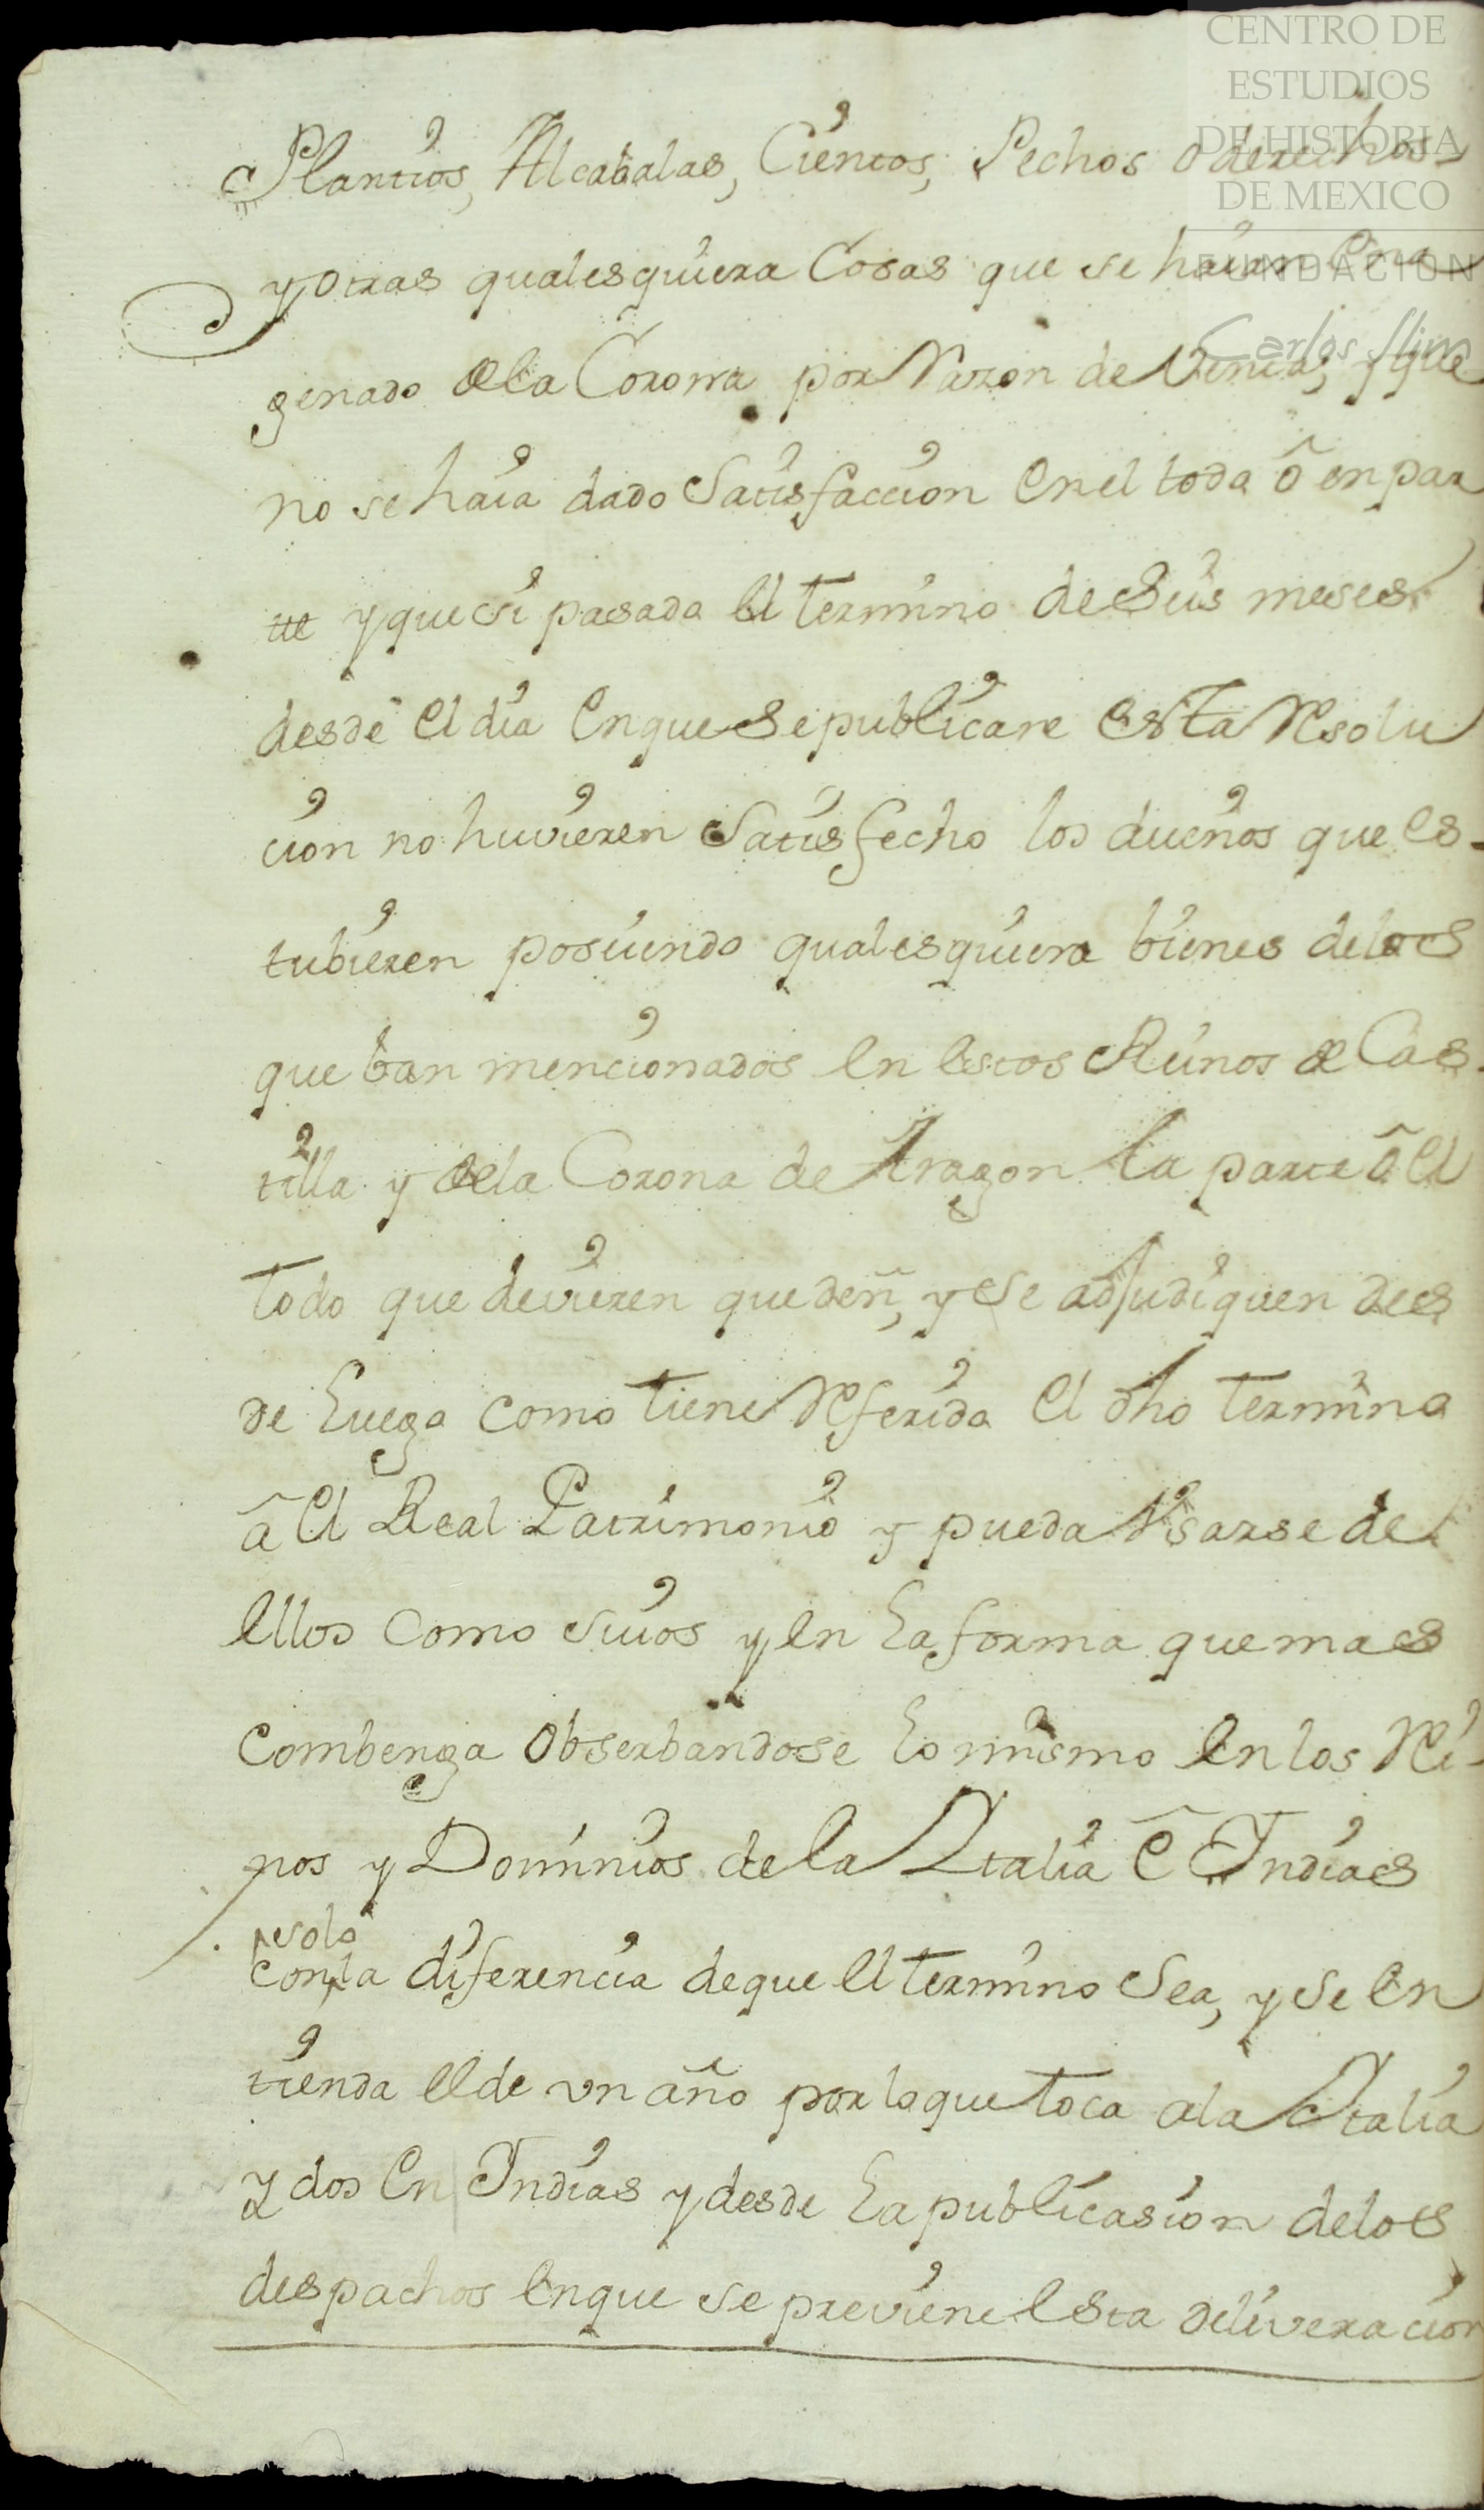 CENTRO DE
ESTUDIOS
DE HISTORIA
DE MEXICO
FUNDACION
Carlos Slim
Plantios, Alcabalas, Cientos, Pechos o derechos
y otras qualesquiera Cosas que se haian Ena
genado de la Corona por Razon de Venta, y que
no se haia dado Satisfaccion en el toda ô en par
te y que si pasada el termino de Seis meses
desde el dia en que Se publicare esta Resolu
cion no huvieren Satisfecho los dueños que es-
tubieren posiendo qualesquiera bienes de los
que ban mencionados en estos Reinos de Cas-
tilla y de la Corona de Aragon la parte ô el
todo que devieren queden, y Se adjudiquen des
de luego como tiene Referida el dho termino
â el Real Patrimonio y pueda Usarse de
ellos como suios y en la forma que mas
combenga Obserbandose lo mismo en los Rei-
nos y Dominios de la Italia é Indias
solo
con la diferencia de que el termino Sea, y se en
tienda el de vn año por lo que toca a la Italia
y dos en Indias y desde la publicasion de los
despachos en que se previene esta deliveracion